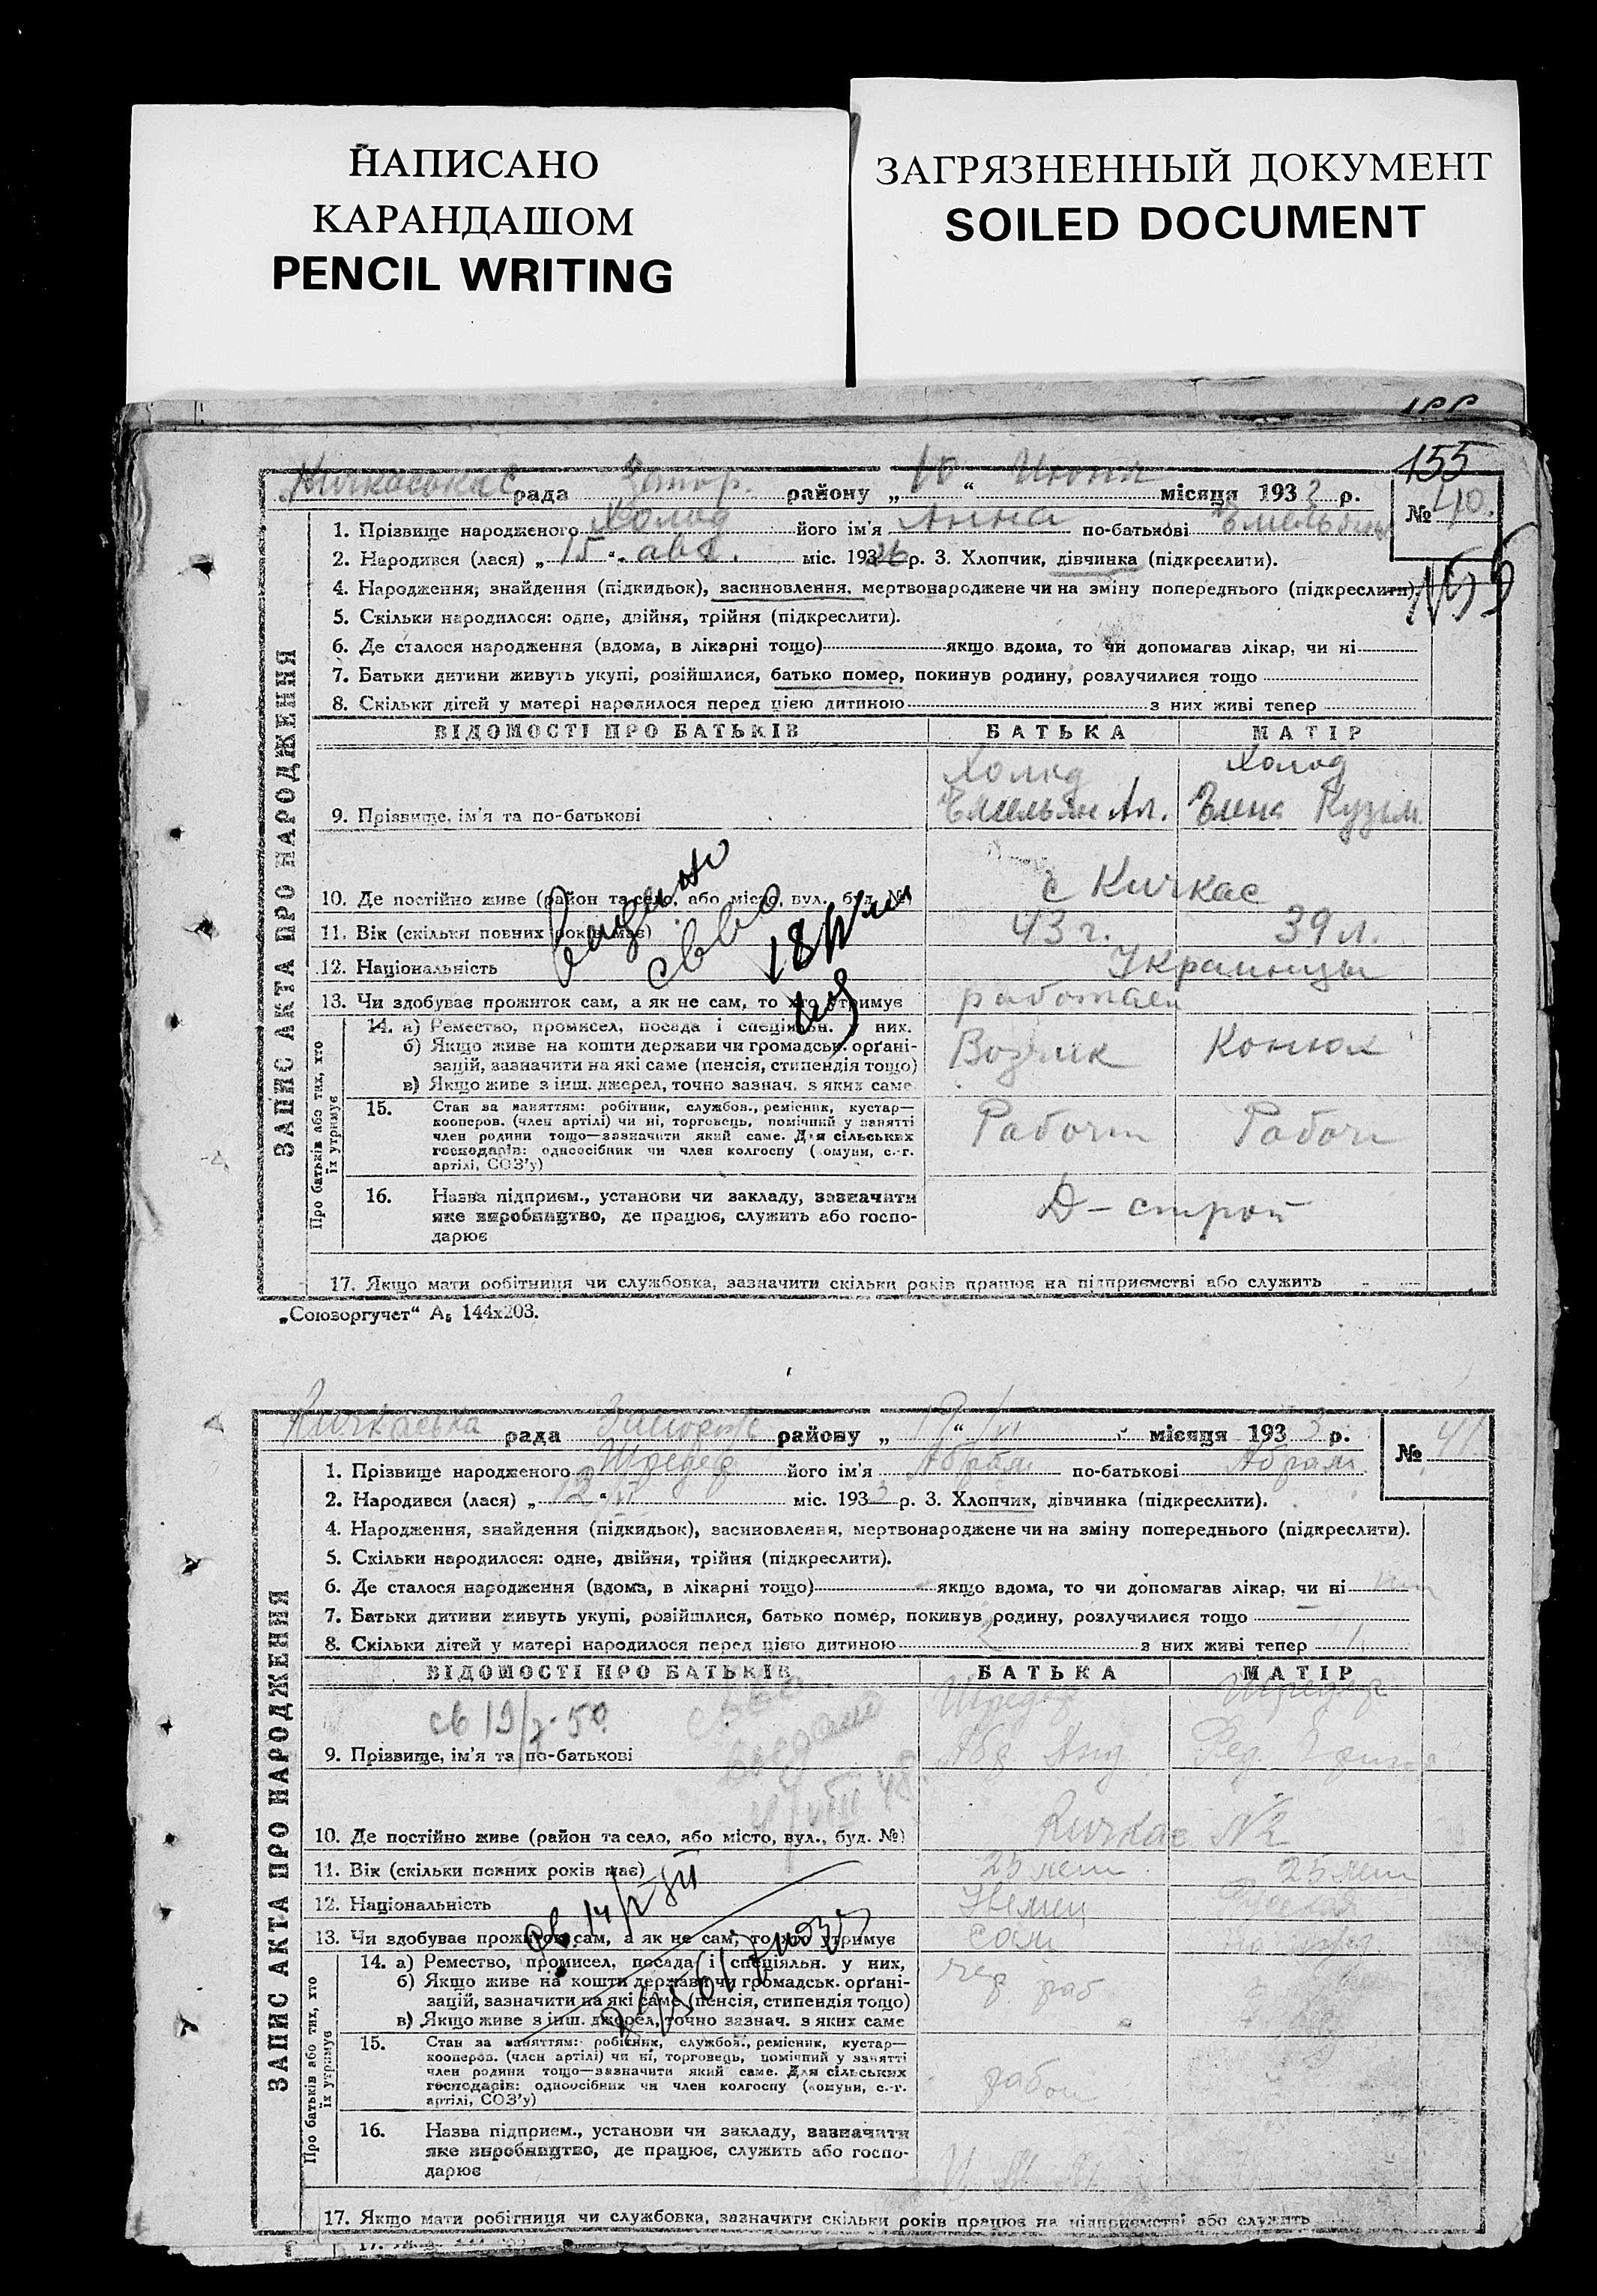 НАПИСАНО
КАРАНДАШОМ
PENCIL WRITING
ЗАГРЯЗНЕННЫЙ ДОКУМЕНТ
SOILED DOCUMENT
155
Кичкаська С рада Запор. району „ 10 “ Июня місяця 193 р.
№ 40.
1. Прізвище народженого Холод його ім'я Анна по-батькові
2. Народився (лася) „ 15 “ авг. міс. 1926 р. 3. Хлопчик, дівчинка (підкреслити).
4. Народження, знайдення (підкидьок), засиновлення, мертвонароджене чи на зміну попереднього (підкреслити).
5. Скільки народилося: одне, двійня, трійня (підкреслити).
6. Де сталося народження (вдома, в лікарні тощо) якщо вдома, то чи допомагав лікар, чи ні
7. Батьки дитини живуть укупі, розійшлися, батько помер, покинув родину, розлучилися тощо
8. Скільки дітей у матері народилося перед цією дитиною з них живі тепер
ЗАПИС АКТА ПРО НАРОДЖЕННЯ
ВІДОМОСТІ ПРО БАТЬКІВ БАТЬКА МАТІР
Холод Холод
9. Прізвище, ім'я та по-батькові Емельян Ал. Елена Кузьм.
10. Де постійно живе (район та село, або місто, вул., буд. №) с Кичкас
11. Вік (скільки повних років має) 43 г. 39 л.
12. Національність Украинцы
13. Чи здобуває прожиток сам, а як не сам, то хто утримує работает
Про батьків або тих, хто їх утримує
14. а) Ремество, промисел, посада і спеціяльн. у них.
б) Якщо живе на кошти держави чи громадськ. орґані-
зацій, зазначити на які саме (пенсія, стипендія тощо) Возчик Конюх
в) Якщо живе з інш. джерел, точно зазнач. з яких саме
15. Стан за заняттям: робітник, службов., ремісник, кустар—
кооперов. (член артілі) чи ні, торговець, помічний у занятті
член родини тощо—зазначити який саме. Для сільських
господарів: одноосібник чи член колгоспу (комуни, с.-г.
артілі, СОЗ'у)
16. Назва підприєм., установи чи закладу, зазначити
яке виробництво, де працює, служить або госпо-
дарює Д-строй
17. Якщо мати робітниця чи службовка, зазначити скільки років працює на підприємстві або служить
„Союзоргучет“ А5 144х203.
Кичкаська рада району „ “ місяця 193 3 р.
№ 41.
1. Прізвище народженого Шредер його ім'я Абрам по-батькові Абрам
2. Народився (лася) „ 12 “ міс. 193 3 р. 3. Хлопчик, дівчинка (підкреслити).
4. Народження, знайдення (підкидьок), засиновлення, мертвонароджене чи на зміну попереднього (підкреслити).
5. Скільки народилося: одне, двійня, трійня (підкреслити).
6. Де сталося народження (вдома, в лікарні тощо) якщо вдома, то чи допомагав лікар, чи ні
7. Батьки дитини живуть укупі, розійшлися, батько помер, покинув родину, розлучилися тощо
8. Скільки дітей у матері народилося перед цією дитиною з них живі тепер 1
ЗАПИС АКТА ПРО НАРОДЖЕННЯ
ВІДОМОСТІ ПРО БАТЬКІВ БАТЬКА МАТІР
Шредер Шредер
9. Прізвище, ім'я та по-батькові
10. Де постійно живе (район та село, або місто, вул., буд. №) Кичкас №2
11. Вік (скільки повних років має) 25 лет
12. Національність Немец Русская
13. Чи здобуває прожиток сам, а як не сам, то хто утримує сам
Про батьків або тих, хто їх утримує
14. а) Ремество, промисел, посада і спеціяльн. у них, чер раб
б) Якщо живе на кошти держави чи громадськ. орґані-
зацій, зазначити на які саме (пенсія, стипендія тощо)
в) Якщо живе з інш. джерел, точно зазнач. з яких саме
15. Стан за заняттям: робітник, службов., ремісник, кустар—
кооперов. (член артілі) чи ні, торговець, помічний у занятті
член родини тощо—зазначити який саме. Для сільських
господарів: одноосібник чи член колгоспу (комуни, с.-г.
артілі, СОЗ'у) рабоч
16. Назва підприєм., установи чи закладу, зазначити
яке виробництво, де працює, служить або госпо-
дарює
17. Якщо мати робітниця чи службовка, зазначити скільки років працює на підприємстві або служить